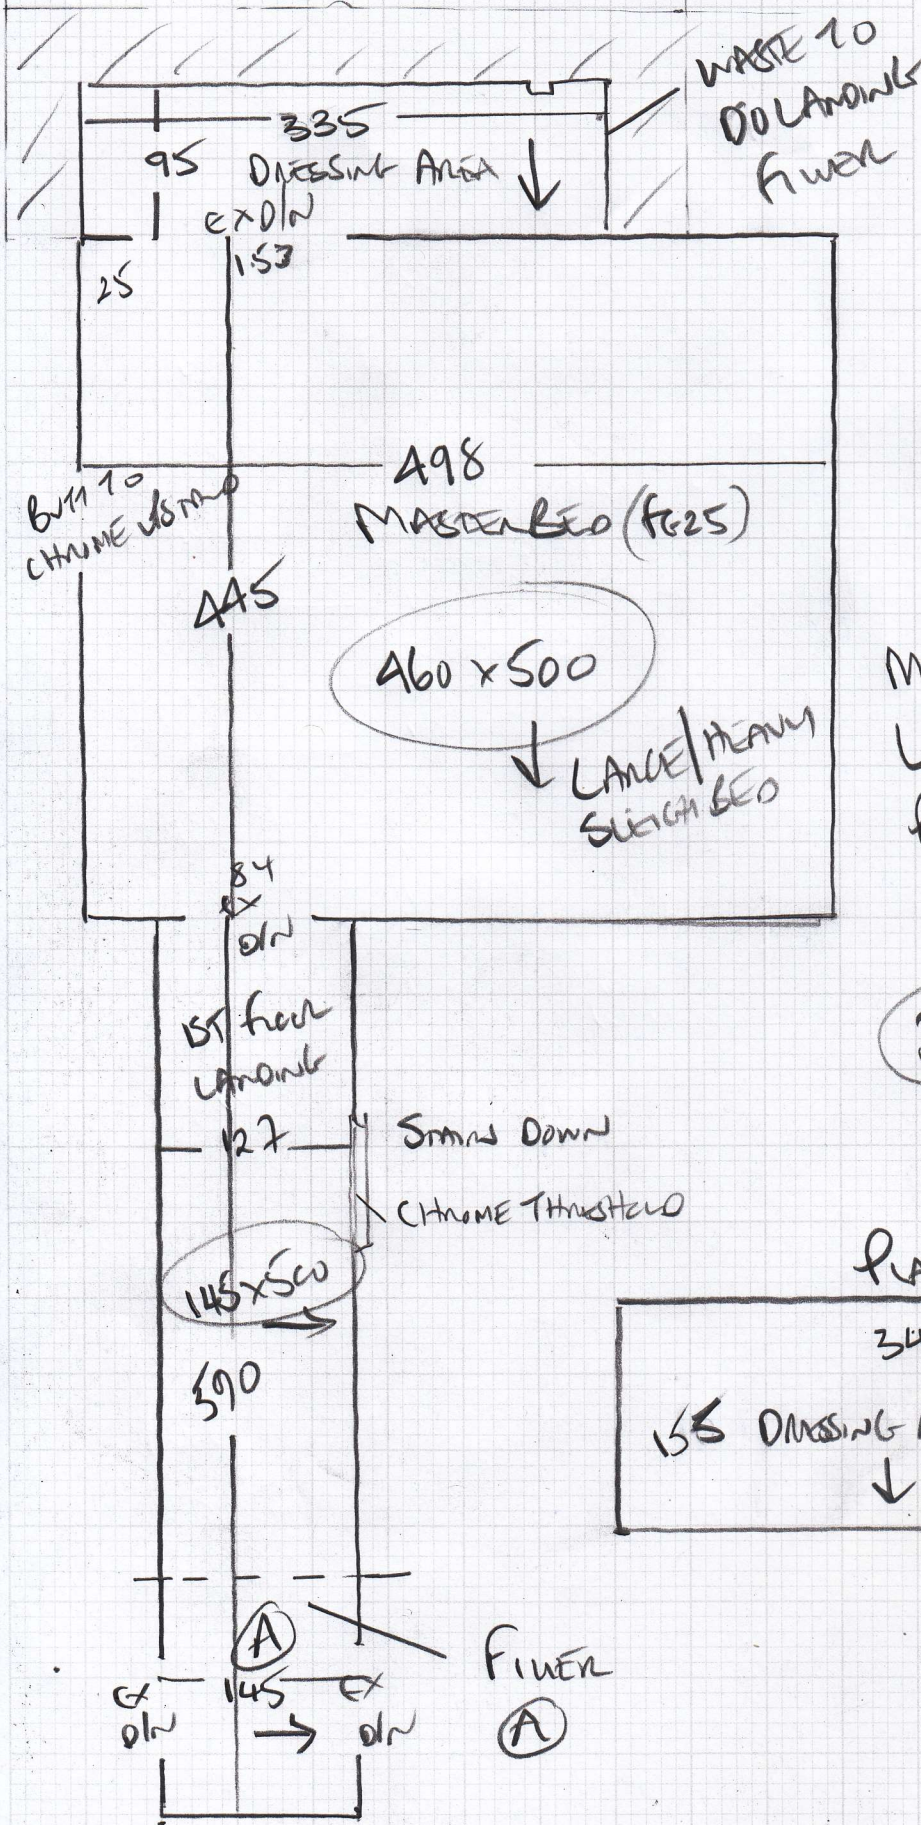 WASTE TO
DO LANDING
FILLER
335
95
DRESSING AREA
EX D/N
153
25
498
BUTT TO
CHROME
MASTER BED (FG25)
445
460 x 500
LARGE/HEAVY
SLEIGH BED
84
EX
D/N
1ST FLOOR
LANDING
127
STAIRS DOWN
CHROME THRESHOLD
145 x 500
590
155 DRESSING
A
FILLER
A
EX
D/N
145
EX
D/N